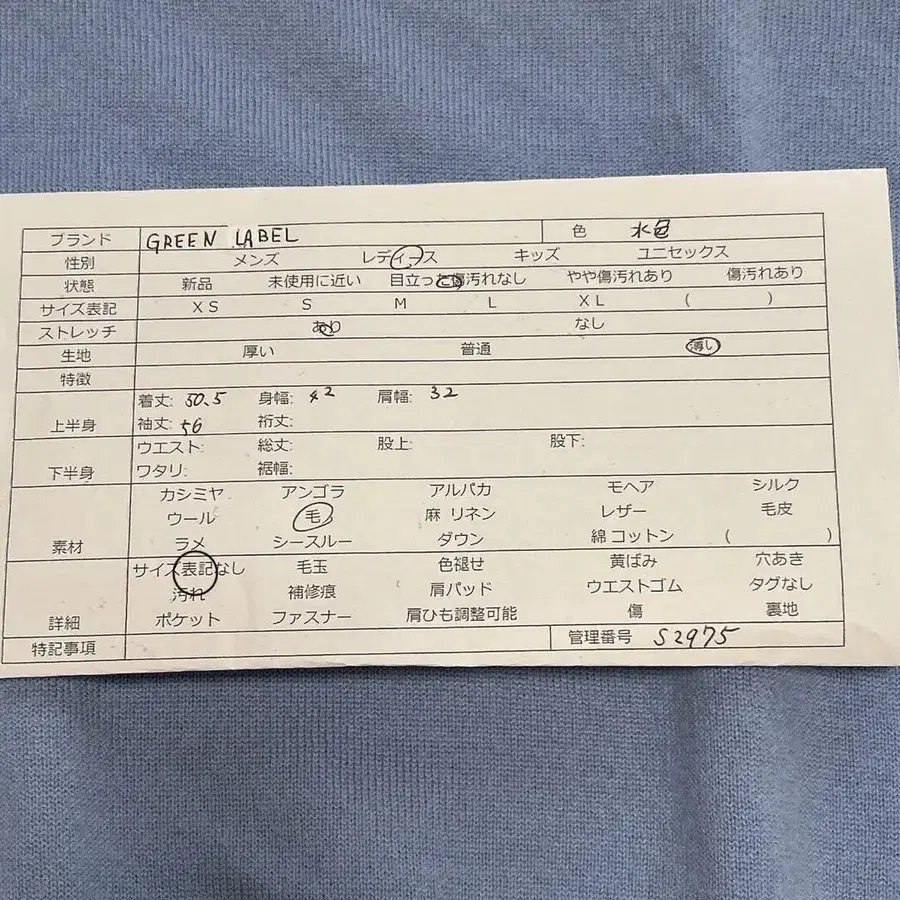 ブランド GREEN LABEL 色 水色
性別 メンズ レディース キッズ ユニセックス
状態 新品 未使用に近い 目立った傷汚れなし やや傷汚れあり 傷汚れあり
サイズ表記 XS S M L XL ( )
ストレッチ あり なし
生地 厚い 普通 薄い
特徴
上半身 着丈: 50.5 身幅: 42 肩幅: 32
袖丈: 56 裄丈:
下半身 ウエスト: 総丈: 股上: 股下:
ワタリ: 裾幅:
素材 カシミヤ アンゴラ アルパカ モヘア シルク
ウール 毛 麻 リネン レザー 毛皮
ラメ シースルー ダウン 綿 コットン ( )
詳細 サイズ表記なし 毛玉 色褪せ 黄ばみ 穴あき
汚れ 補修痕 肩パッド ウエストゴム タグなし
ポケット ファスナー 肩ひも調整可能 傷 裏地
特記事項 管理番号 S2975